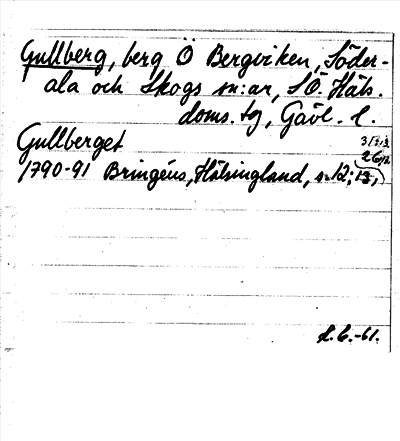 Gullberg, berg Ö Bergviken, Söder-
ala och Skogs sn:ar, SÖ. Häls.
doms. tg, Gävl. l.
Gullberget
1790-91 Bringéus, Hälsingland, s. 12; 13,
L. C. -61.